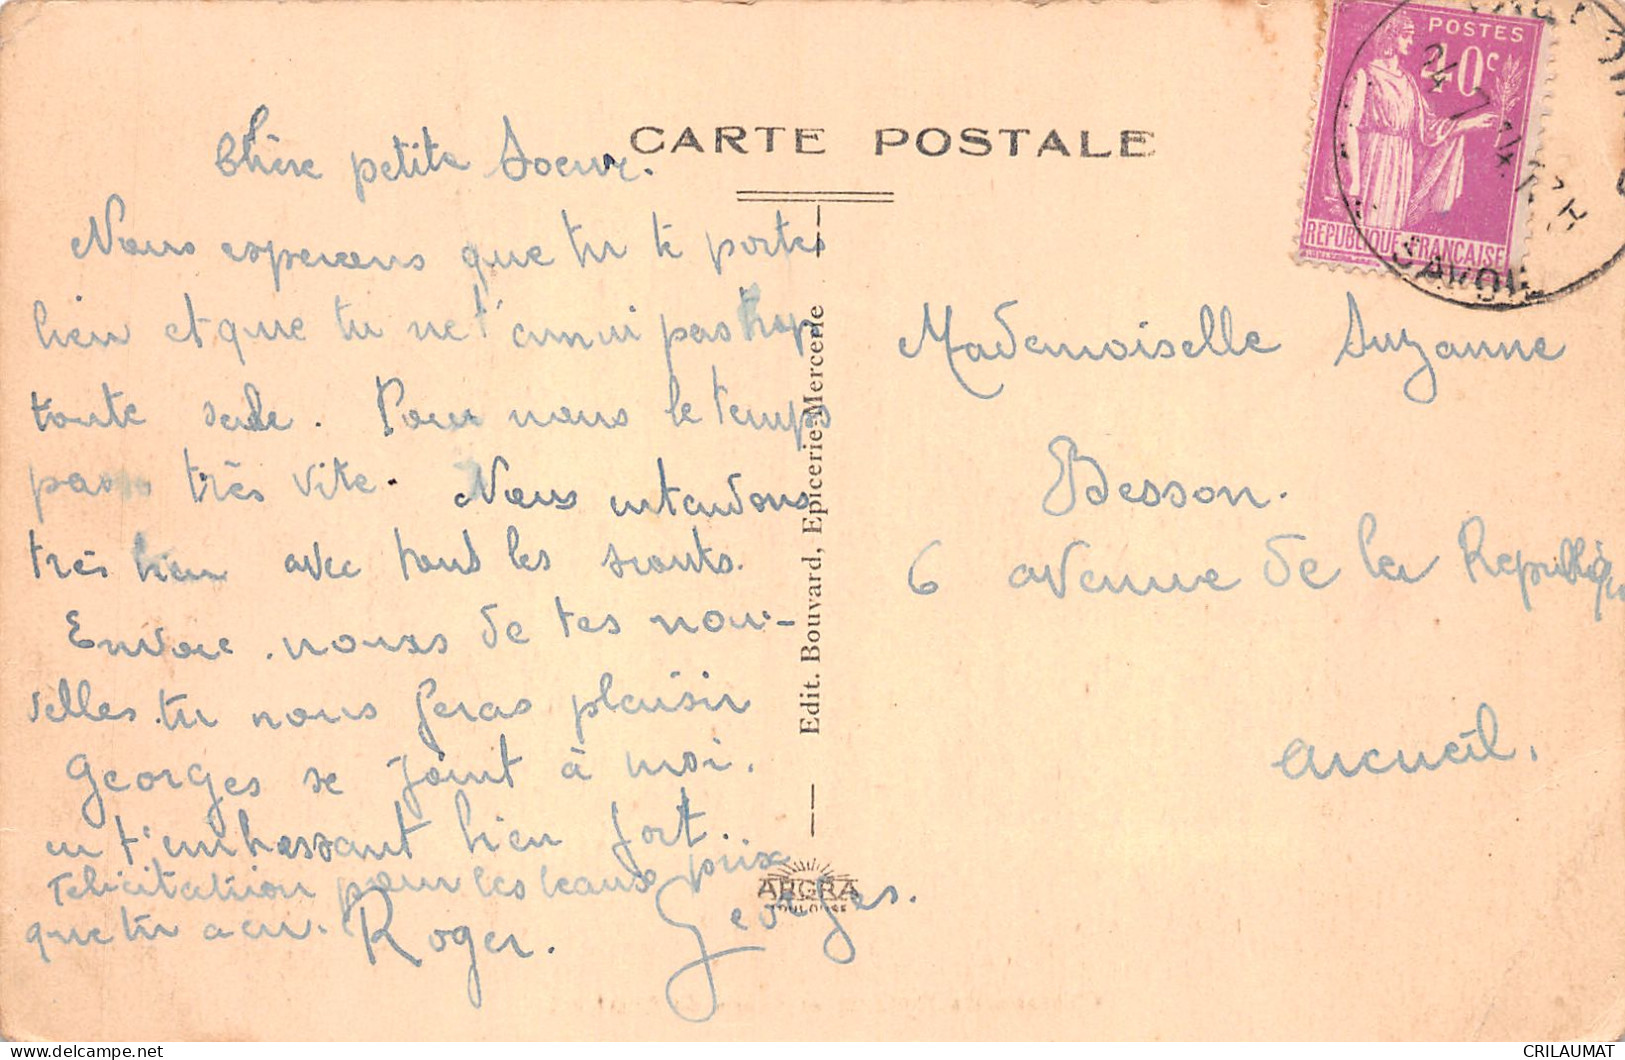 CARTE POSTALE
Chère petite Soeur.
Nous esperons que tu te portes
bien et que tu ne t'ennui pas trop
toute seule. Pour nous le temps
passe très vite. Nous entendons
très bien avec tous les scouts.
Envoie nous de tes nou-
velles tu nous feras plaisir
Georges se joint à moi.
en t'embrassant bien fort.
Felicitation pour les beaux prix
que tu a eu. Roger. Georges.
Edit. Bouvard, Epicerie-Mercerie
ARGRA
TOULOUSE
POSTES
40c
REPUBLIQUE FRANÇAISE
24 7
SAVOIE
Mademoiselle Suzanne
Besson.
6 avenue de la Republique
Arcueil.
CRILAUMAT